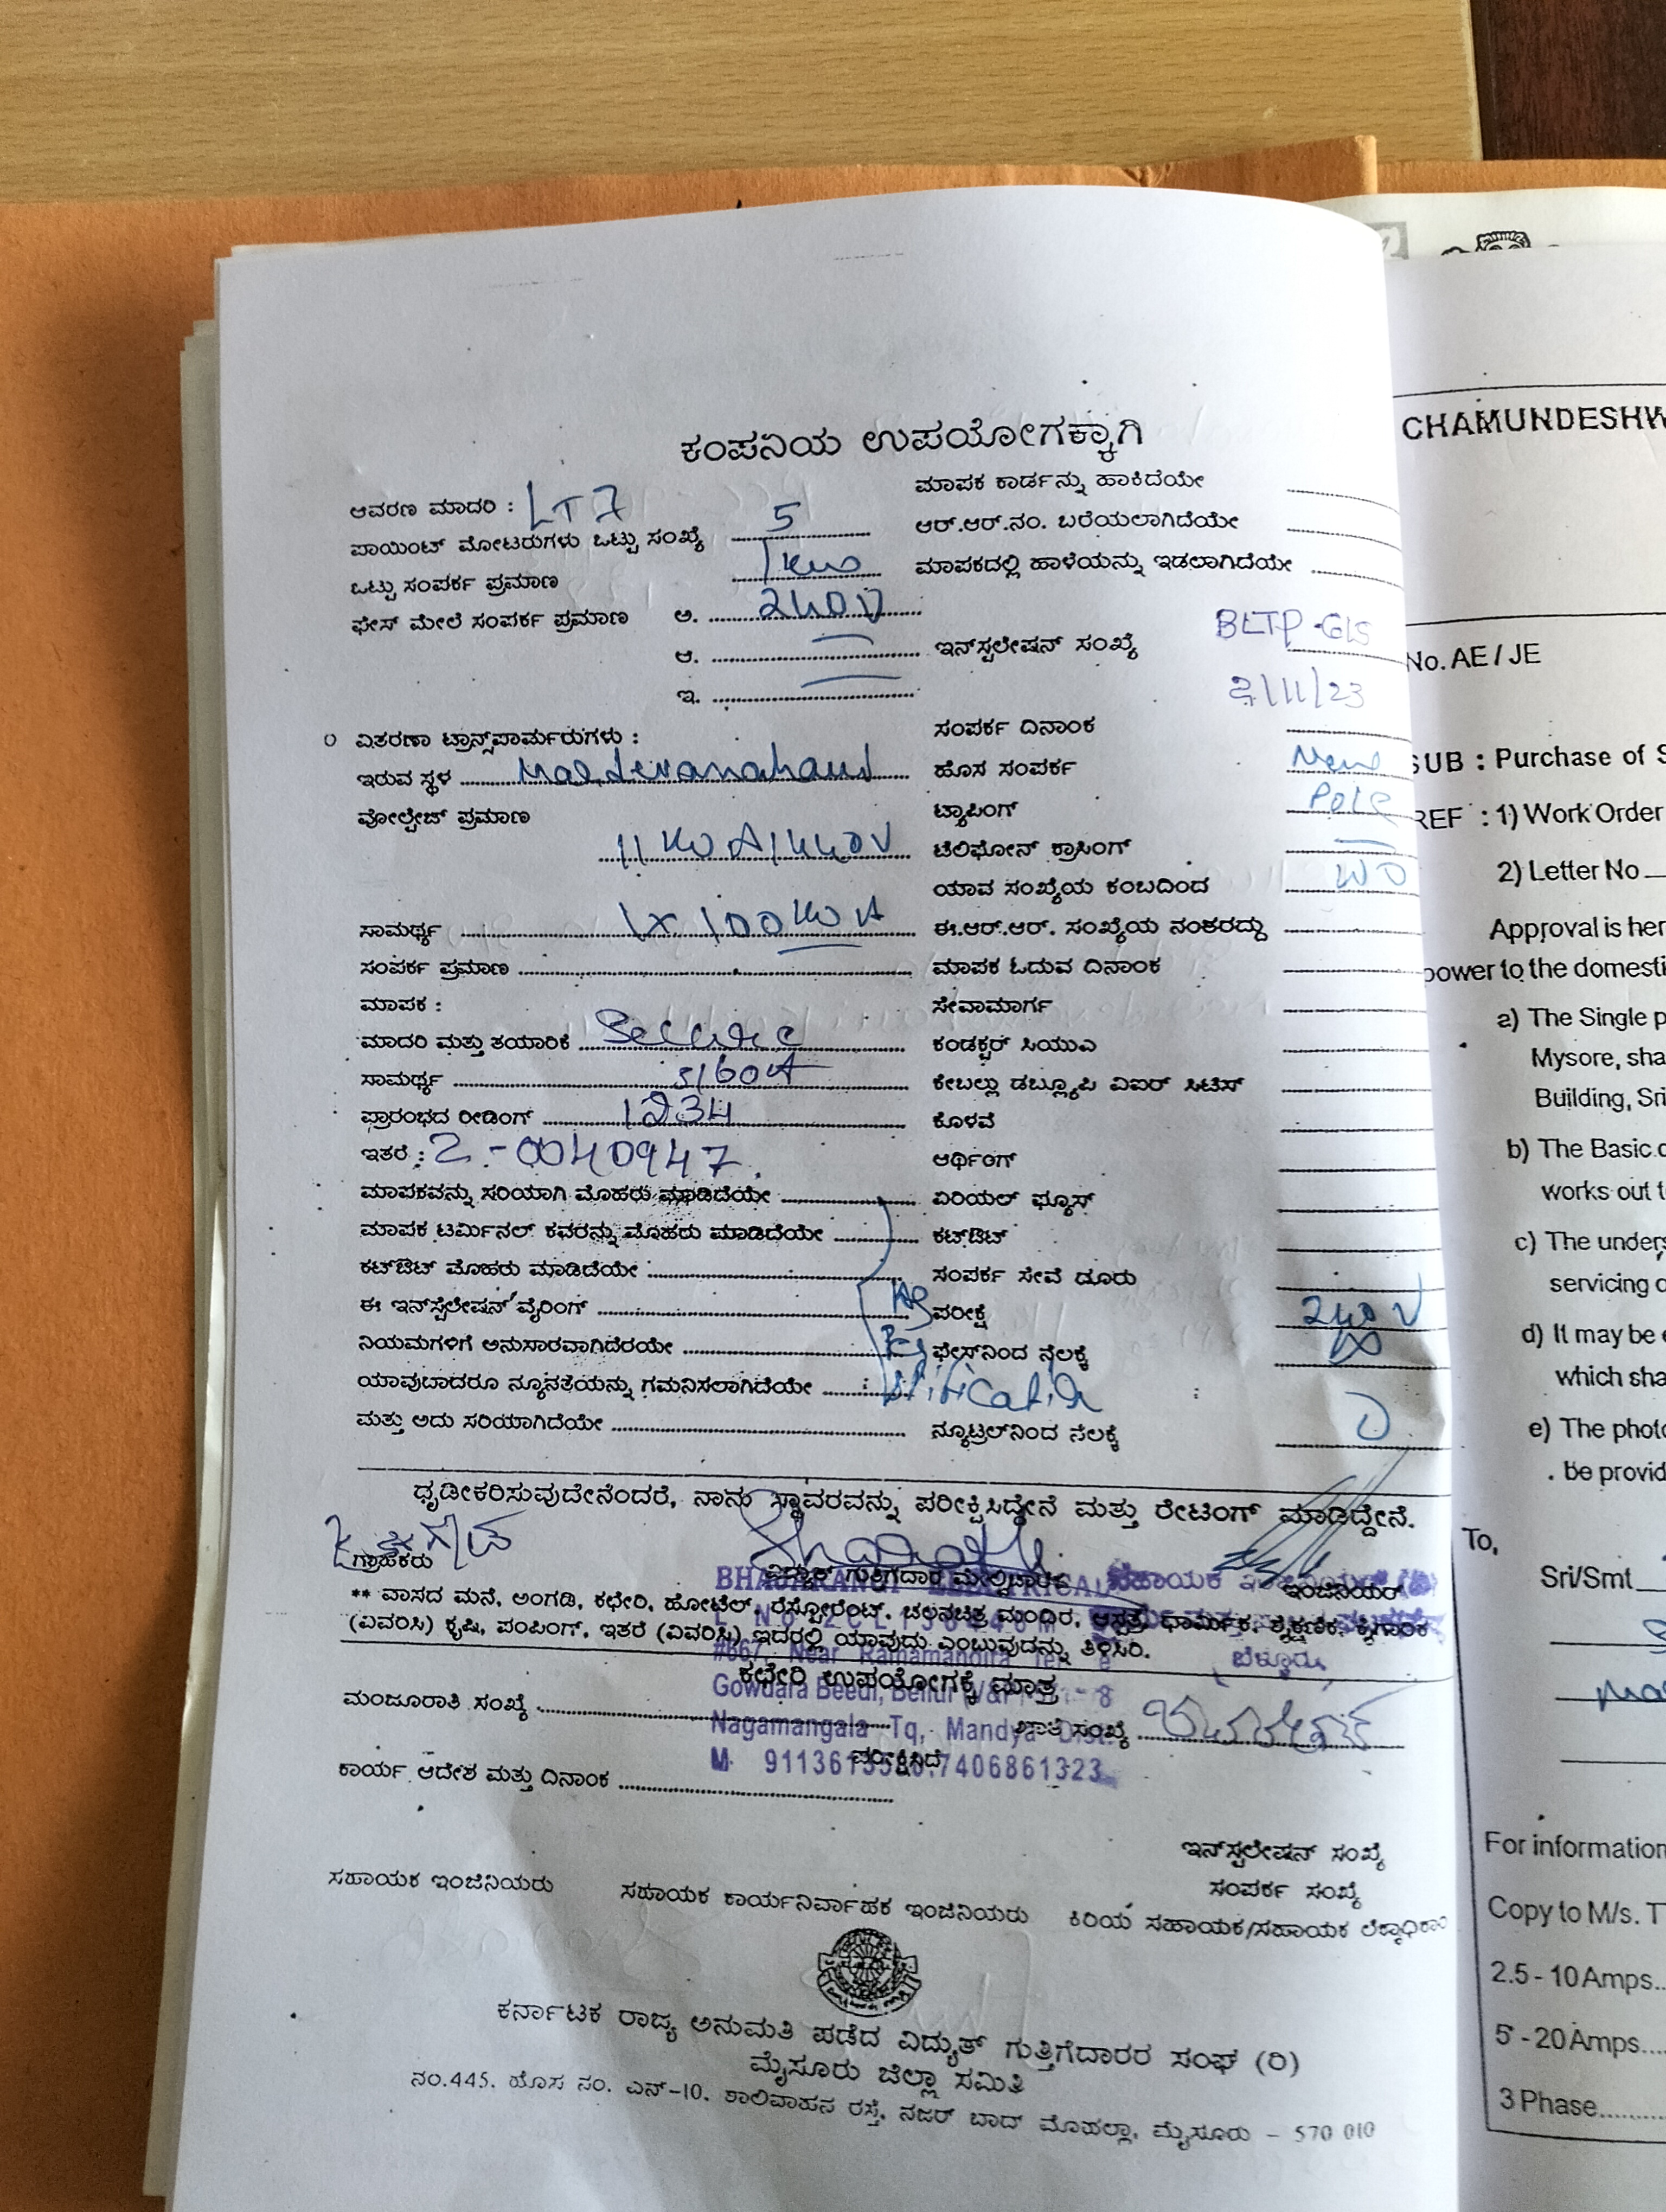 ಕಂಪನಿಯ ಉಪಯೋಗಕ್ಕಾಗಿ
ಆವರಣ ಮಾದರಿ : LT7
ಪಾಯಿಂಟ್ ಮೋಟರುಗಳು ಒಟ್ಟು ಸಂಖ್ಯೆ 5
ಒಟ್ಟು ಸಂಪರ್ಕ ಪ್ರಮಾಣ 1kw
ಫೇಸ್ ಮೇಲೆ ಸಂಪರ್ಕ ಪ್ರಮಾಣ ಅ. 240V
ಆ.
ಇ.
ವಿತರಣಾ ಟ್ರಾನ್ಸ್‌ಪಾರ್ಮರುಗಳು :
ಇರುವ ಸ್ಥಳ
ವೋಲ್ಟೇಜ್ ಪ್ರಮಾಣ
ಸಾಮರ್ಥ್ಯ
ಸಂಪರ್ಕ ಪ್ರಮಾಣ
ಮಾಪಕ :
ಮಾದರಿ ಮತ್ತು ತಯಾರಿಕೆ Secure
ಸಾಮರ್ಥ್ಯ 5/60A
ಪ್ರಾರಂಭದ ರೀಡಿಂಗ್ 1234
ಇತರೆ : 2-0040947.
ಮಾಪಕವನ್ನು ಸರಿಯಾಗಿ ಮೊಹರು ಮಾಡಿದೆಯೇ
ಮಾಪಕ ಟರ್ಮಿನಲ್ ಕವರನ್ನು ಮೊಹರು ಮಾಡಿದೆಯೇ
ಕಟ್‌ಔಟ್ ಮೊಹರು ಮಾಡಿದೆಯೇ
ಈ ಇನ್‌ಸ್ಟಲೇಷನ್ ವೈರಿಂಗ್
ನಿಯಮಗಳಿಗೆ ಅನುಸಾರವಾಗಿದೆರಯೇ
ಯಾವುದಾದರೂ ನ್ಯೂನತೆಯನ್ನು ಗಮನಿಸಲಾಗಿದೆಯೇ
ಮತ್ತು ಅದು ಸರಿಯಾಗಿದೆಯೇ
ಮಾಪಕ ಕಾರ್ಡನ್ನು ಹಾಕಿದೆಯೇ
ಆರ್.ಆರ್.ನಂ. ಬರೆಯಲಾಗಿದೆಯೇ
ಮಾಪಕದಲ್ಲಿ ಹಾಳೆಯನ್ನು ಇಡಲಾಗಿದೆಯೇ
ಇನ್‌ಸ್ಟಲೇಷನ್ ಸಂಖ್ಯೆ
2/11/23
ಸಂಪರ್ಕ ದಿನಾಂಕ
ಹೊಸ ಸಂಪರ್ಕ New
ಟ್ಯಾಪಿಂಗ್ Pole
ಟೆಲಿಫೋನ್ ಕ್ರಾಸಿಂಗ್
ಯಾವ ಸಂಖ್ಯೆಯ ಕಂಬದಿಂದ
ಈ.ಆರ್.ಆರ್. ಸಂಖ್ಯೆಯ ನಂತರದ್ದು
ಮಾಪಕ ಓದುವ ದಿನಾಂಕ
ಸೇವಾಮಾರ್ಗ
ಕಂಡಕ್ಟರ್ ಸಿಯುಎ
ಕೇಬಲ್ಲು ಡಬ್ಲ್ಯೂಪಿ ವಿಐರ್ ಸಿಟಿಸ್
ಕೊಳವೆ
ಅರ್ಥಿಂಗ್
ಏರಿಯಲ್ ಫ್ಯೂಸ್
ಕಟ್‌ಔಟ್
ಸಂಪರ್ಕ ಸೇವೆ ದೂರು
ಪರೀಕ್ಷೆ 240V
ಫೇಸ್‌ನಿಂದ ನೆಲಕ್ಕೆ
ನ್ಯೂಟ್ರಲ್‌ನಿಂದ ನೆಲಕ್ಕೆ
ಧೃಡೀಕರಿಸುವುದೇನೆಂದರೆ, ನಾನು ಸ್ಥಾವರವನ್ನು ಪರೀಕ್ಷಿಸಿದ್ದೇನೆ ಮತ್ತು ರೇಟಿಂಗ್ ಮಾಡಿದ್ದೇನೆ.
ಗ್ರಾಹಕರು
ಇಂಜಿನಿಯರ್
** ವಾಸದ ಮನೆ, ಅಂಗಡಿ, ಕಛೇರಿ, ಹೋಟೆಲ್, ರೆಸ್ಟೋರೆಂಟ್, ಚಲನಚಿತ್ರ ಮಂದಿರ, ಆಸ್ಪತ್ರೆ ಧಾರ್ಮಿಕ, ಶೈಕ್ಷಣಿಕ, ಕೈಗಾರಿಕ
(ವಿವರಿಸಿ) ಕೃಷಿ, ಪಂಪಿಂಗ್, ಇತರೆ (ವಿವರಿಸಿ) ಇದರಲ್ಲಿ ಯಾವುದು ಎಂಬುವುದನ್ನು ತಿಳಿಸಿರಿ.
ಬೆಳ್ಳೂರು
ಕಛೇರಿ ಉಪಯೋಗಕ್ಕೆ ಮಾತ್ರ
Gowdara Beedi, Bellur
ಮಂಜೂರಾತಿ ಸಂಖ್ಯೆ
Nagamangala Tq, Mandya Dist.
ಖಾತೆ ಸಂಖ್ಯೆ
7406861323
ಕಾರ್ಯ ಆದೇಶ ಮತ್ತು ದಿನಾಂಕ
ಇನ್‌ಸ್ಟಲೇಷನ್ ಸಂಖ್ಯೆ
ಸಂಪರ್ಕ ಸಂಖ್ಯೆ
ಸಹಾಯಕ ಇಂಜಿನಿಯರು ಸಹಾಯಕ ಕಾರ್ಯನಿರ್ವಾಹಕ ಇಂಜಿನಿಯರು ಕಿರಿಯ ಸಹಾಯಕ/ಸಹಾಯಕ ಲೆಕ್ಕಾಧಿಕಾರಿ
ಕರ್ನಾಟಕ ರಾಜ್ಯ ಅನುಮತಿ ಪಡೆದ ವಿದ್ಯುತ್ ಗುತ್ತಿಗೆದಾರರ ಸಂಘ (ರಿ)
ಮೈಸೂರು ಜಿಲ್ಲಾ ಸಮಿತಿ
ನಂ.445, ಹೊಸ ನಂ. ಎನ್-10, ಶಾಲಿವಾಹನ ರಸ್ತೆ, ನಜರ್ ಬಾದ್ ಮೊಹಲ್ಲಾ, ಮೈಸೂರು - 570 010
CHAMUNDESHW
No. AE / JE
SUB : Purchase of S
REF : 1) Work Order
2) Letter No
Approval is her
power to the domesti
a) The Single p
Mysore, sha
Building, Sri
b) The Basic c
works out t
c) The unders
servicing c
d) It may be e
which sha
e) The photo
be provid
To,
Sri/Smt
For information
Copy to M/s. T
2.5 - 10 Amps..
5 - 20 Amps....
3 Phase........